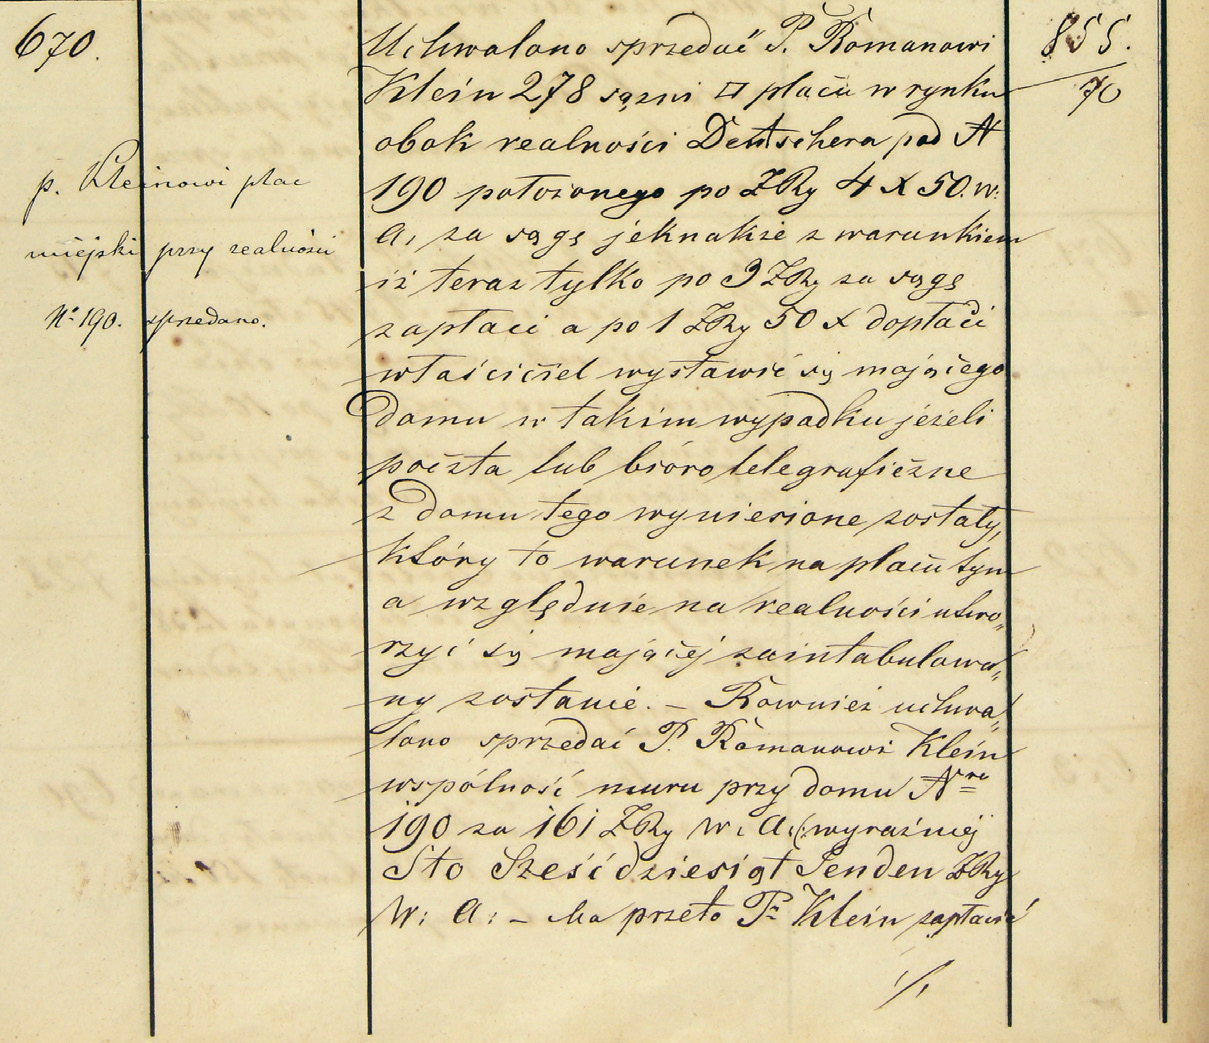 670.
p. Kleinowi plac
miejski przy realności
Nr 190. sprzedano.
Uchwalono sprzedać P. Romanowi
Klein 278 sązni □ placu w rynku
obok realności Deutschera pod N
190 położonego po ZRy 4 X 50. w:
a, za sągę jeknakże z warunkiem
iż teraz tylko po 3 ZRy za sągę
zapłaci a po 1 ZRy 50 X dopłaci
właściciel wystawić się mającego
domu w takim wypadku jeżeli
poczta lub bióro telegraficzne
z domu tego wyniesione zostały,
który to warunek na placu tym
a względnie na realności utwo„
rzyć się mającej zaintabulowa„
ny zostanie. – Rownież uchwa„
lono sprzedać P. Romanowi Klein
wspólność muru przy domu Nro
190 za 161 ZRy W: a: (wyraźniej
Sto Sześćdziesiąt Jenden ZRy
W: a: – Ma przeto P: Klein zapłacić
·/.
855.
70